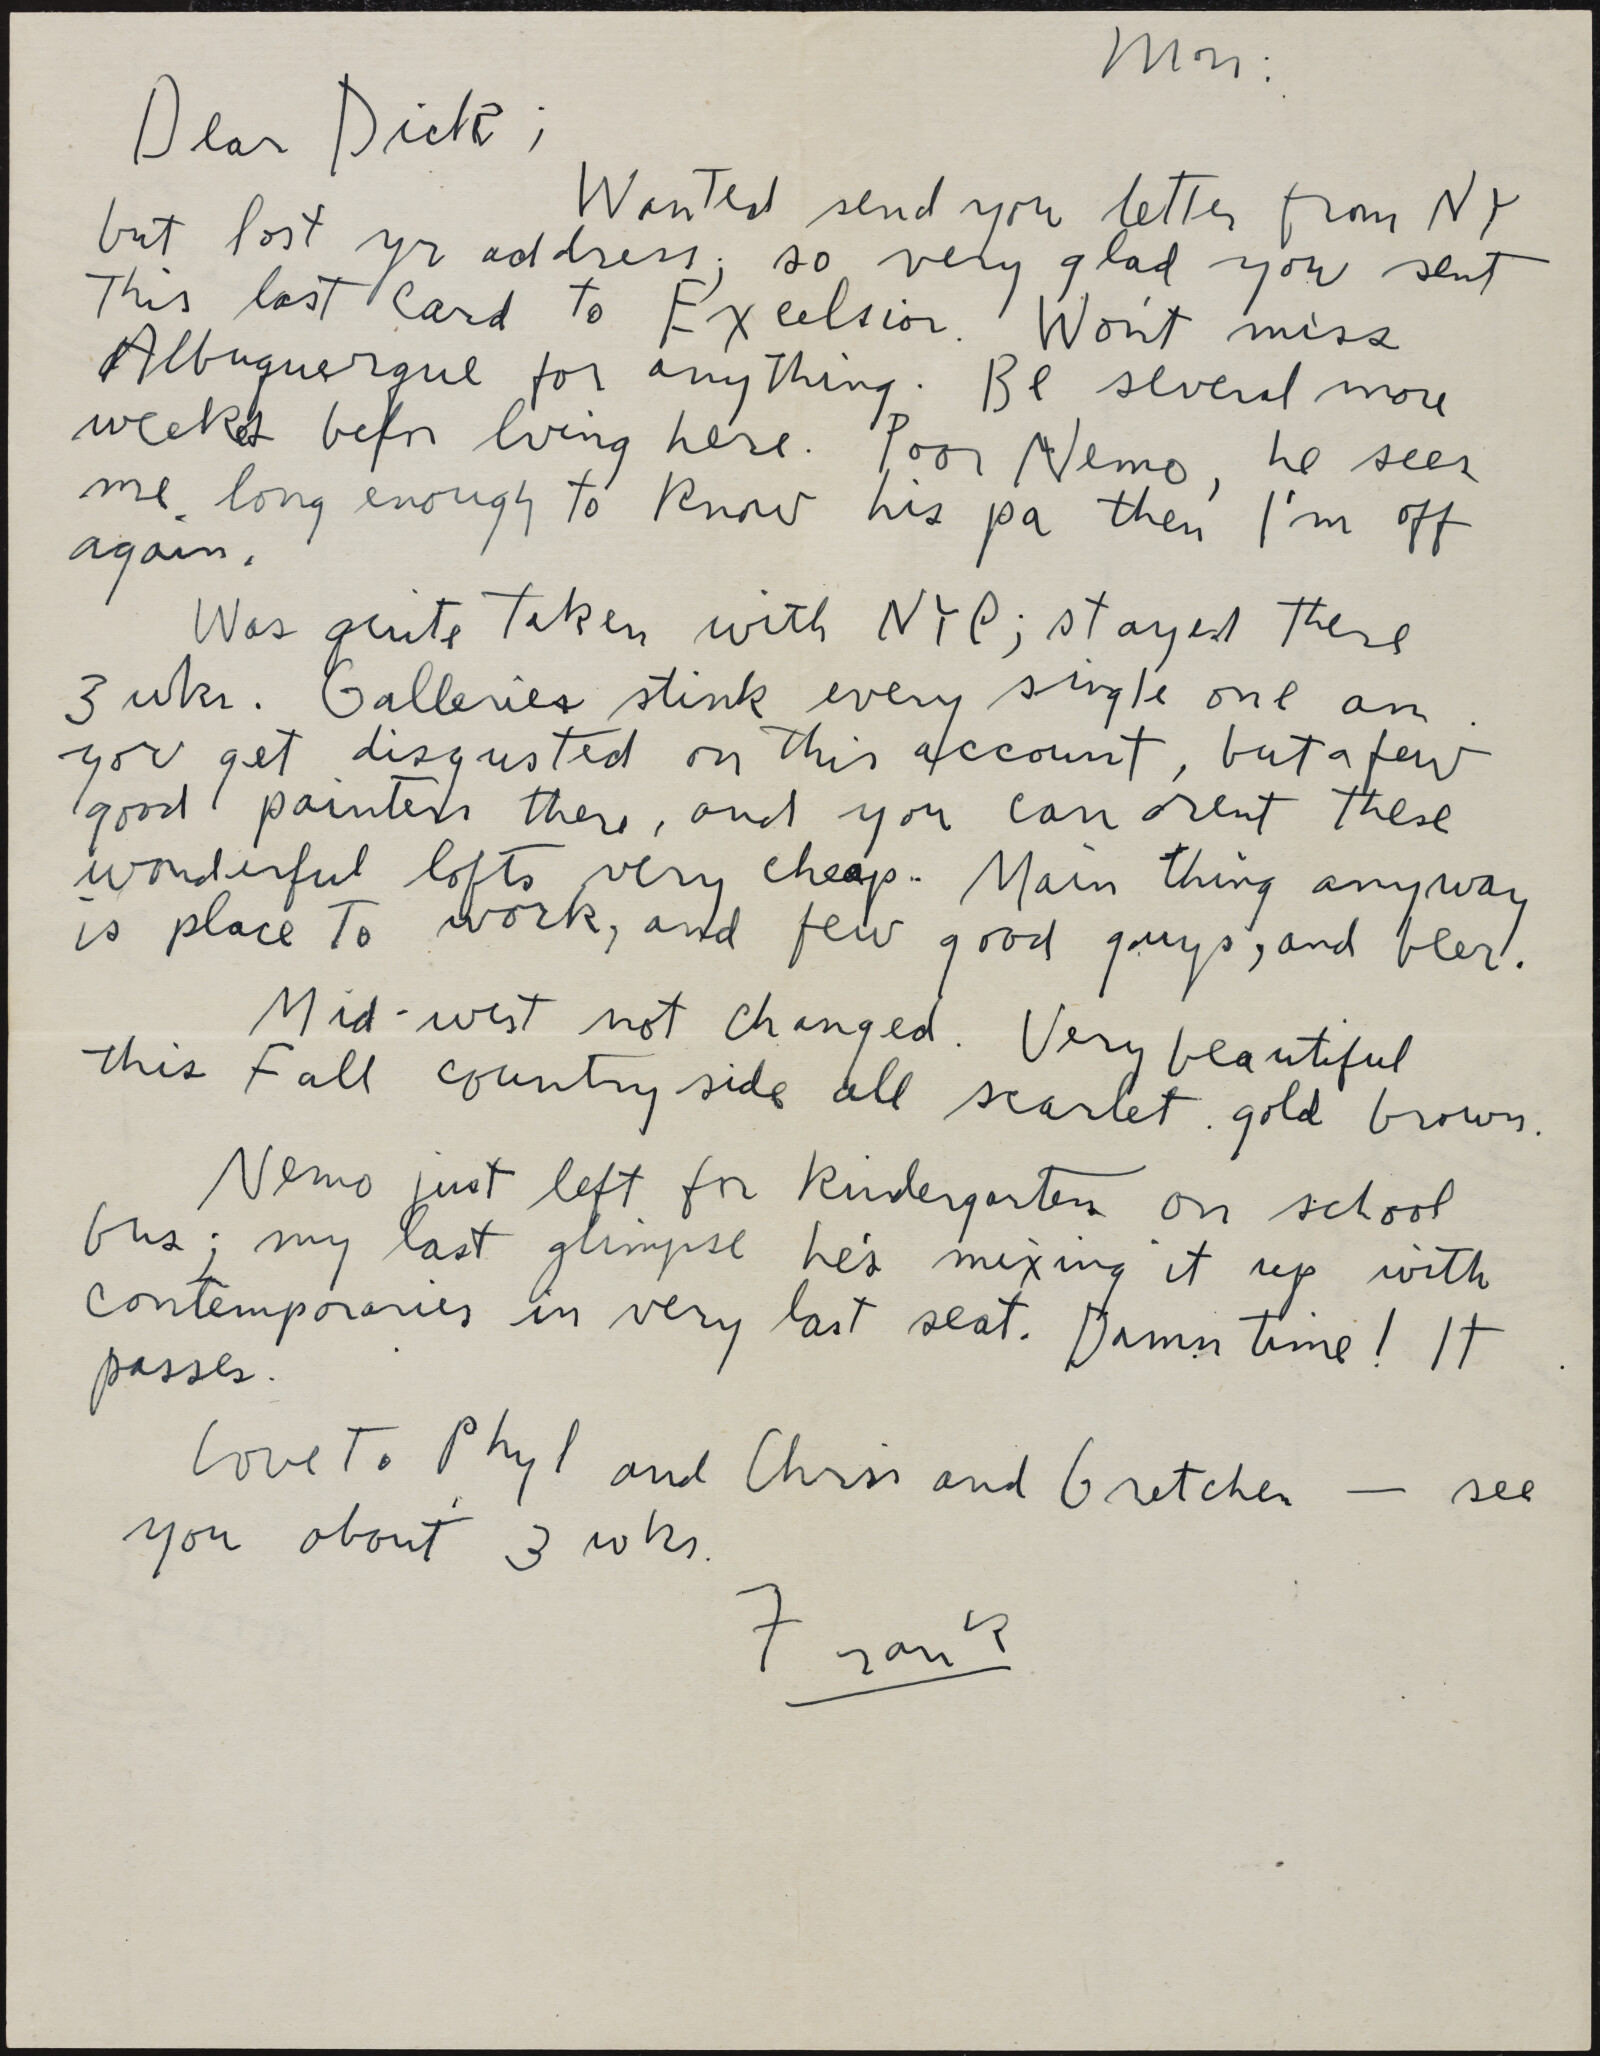 Mon:
Dear Dick;
Wanted send you letter from NY
but lost yr address; so very glad you sent
this last card to Excelsior. Won't miss
Albuquerque for anything. Be several more
weeks befor lving here. Poor Nemo, he sees
me long enough to know his pa then I'm off
again.
Was quite taken with NYC; stayed there
3 wks. Galleries stink every single one an
you get disgusted on this account, but a few
good painters there, and you can rent these
wonderful lofts very cheap. Main thing anyway
is place to work, and few good guys, and beer.
Mid-west not changed. Very beautiful
this Fall countryside all scarlet gold brown.
Nemo just left for kindergarten on school
bus; my last glimpse he's mixing it up with
contemporaries in very last seat. Damn time! It
passes.
Love to Phyl and Chris and Gretchen — see
you about 3 wks.
Frank